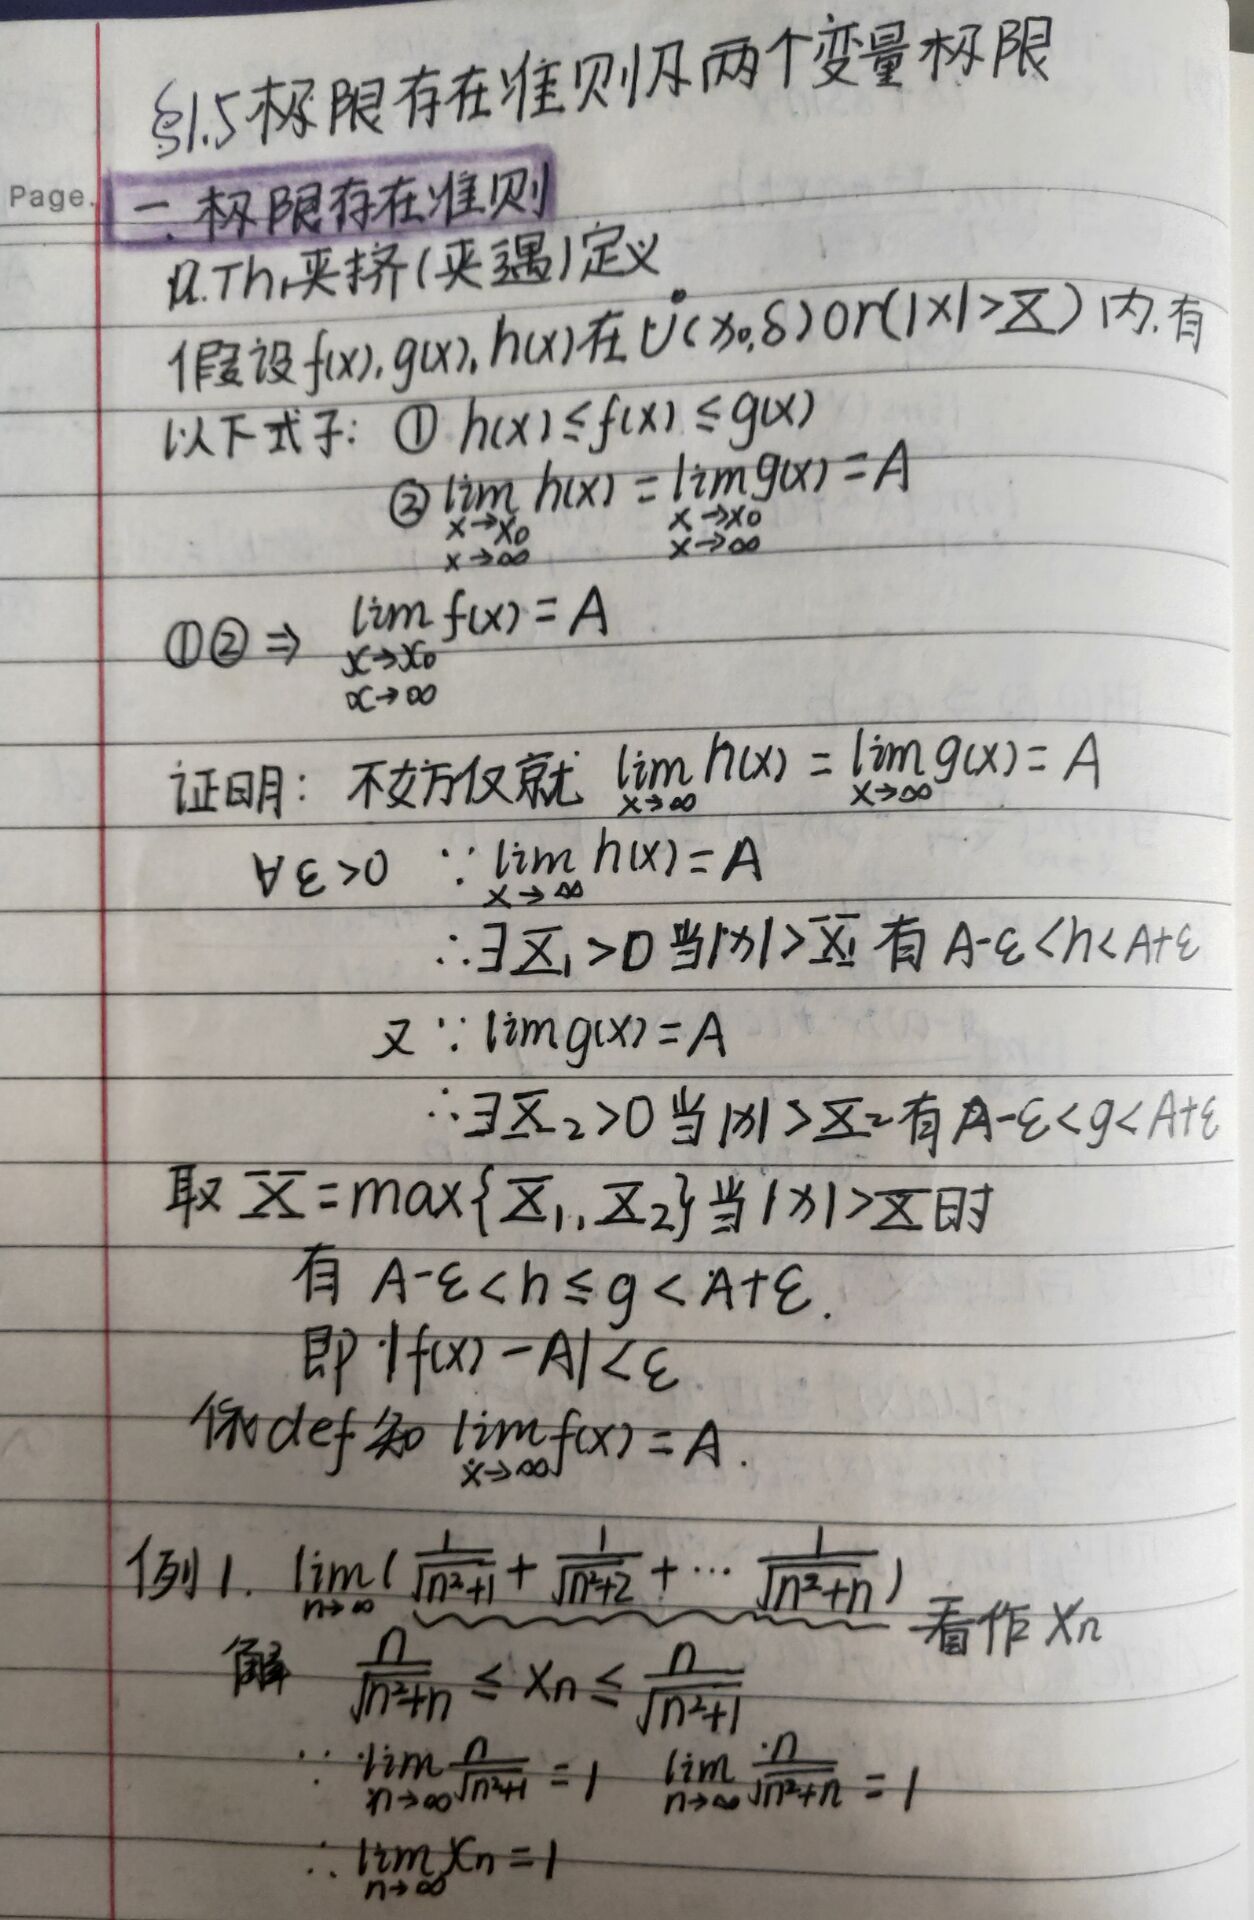 §1.5 极限存在准则及两个变量极限
Page.
一.极限存在准则
Th1夹挤(夹逼)定义
假设f(x),g(x),h(x)在Ů(x₀,δ)or(|x|>X)内.有
以下式子: ① h(x)≤f(x)≤g(x)
② lim h(x) = lim g(x) = A
x→x₀ x→x₀
x→∞ x→∞
①②⇒ lim f(x) = A
x→x₀
x→∞
证明: 不妨仅就 lim h(x) = lim g(x) = A
x→∞ x→∞
∀ε>0 ∵ lim h(x) = A
x→∞
∴∃X₁>0当|x|>X₁有A-ε<h<A+ε
又∵ lim g(x) = A
∴∃X₂>0当|x|>X₂有A-ε<g<A+ε
取X=max{X₁,X₂}当|x|>X时
有 A-ε<h≤g<A+ε.
即|f(x)-A|<ε
依def知 lim f(x) = A.
x→∞
例1. lim ( 1/√(n²+1) + 1/√(n²+2) + ⋯ 1/√(n²+n) )
n→∞
看作xn
解 n/√(n²+n) ≤ xn ≤ n/√(n²+1)
∵ lim n/√(n²+1) = 1 lim n/√(n²+n) = 1
n→∞ n→∞
∴ lim xn = 1
n→∞